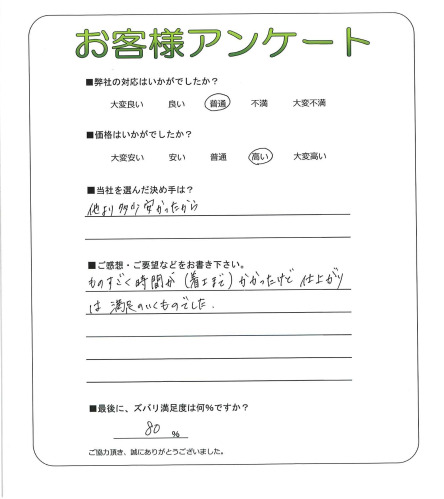 お客様アンケート
■弊社の対応はいかがでしたか？
大変良い 良い 普通 不満 大変不満
■価格はいかがでしたか？
大変安い 安い 普通 高い 大変高い
■当社を選んだ決め手は？
他より多少安かったから
■ご感想・ご要望などをお書き下さい。
ものすごく時間が（着工まで）かかったけど 仕上がり
は 満足のいくものでした.
■最後に、ズバリ満足度は何%ですか？
80 %
ご協力頂き、誠にありがとうございました。